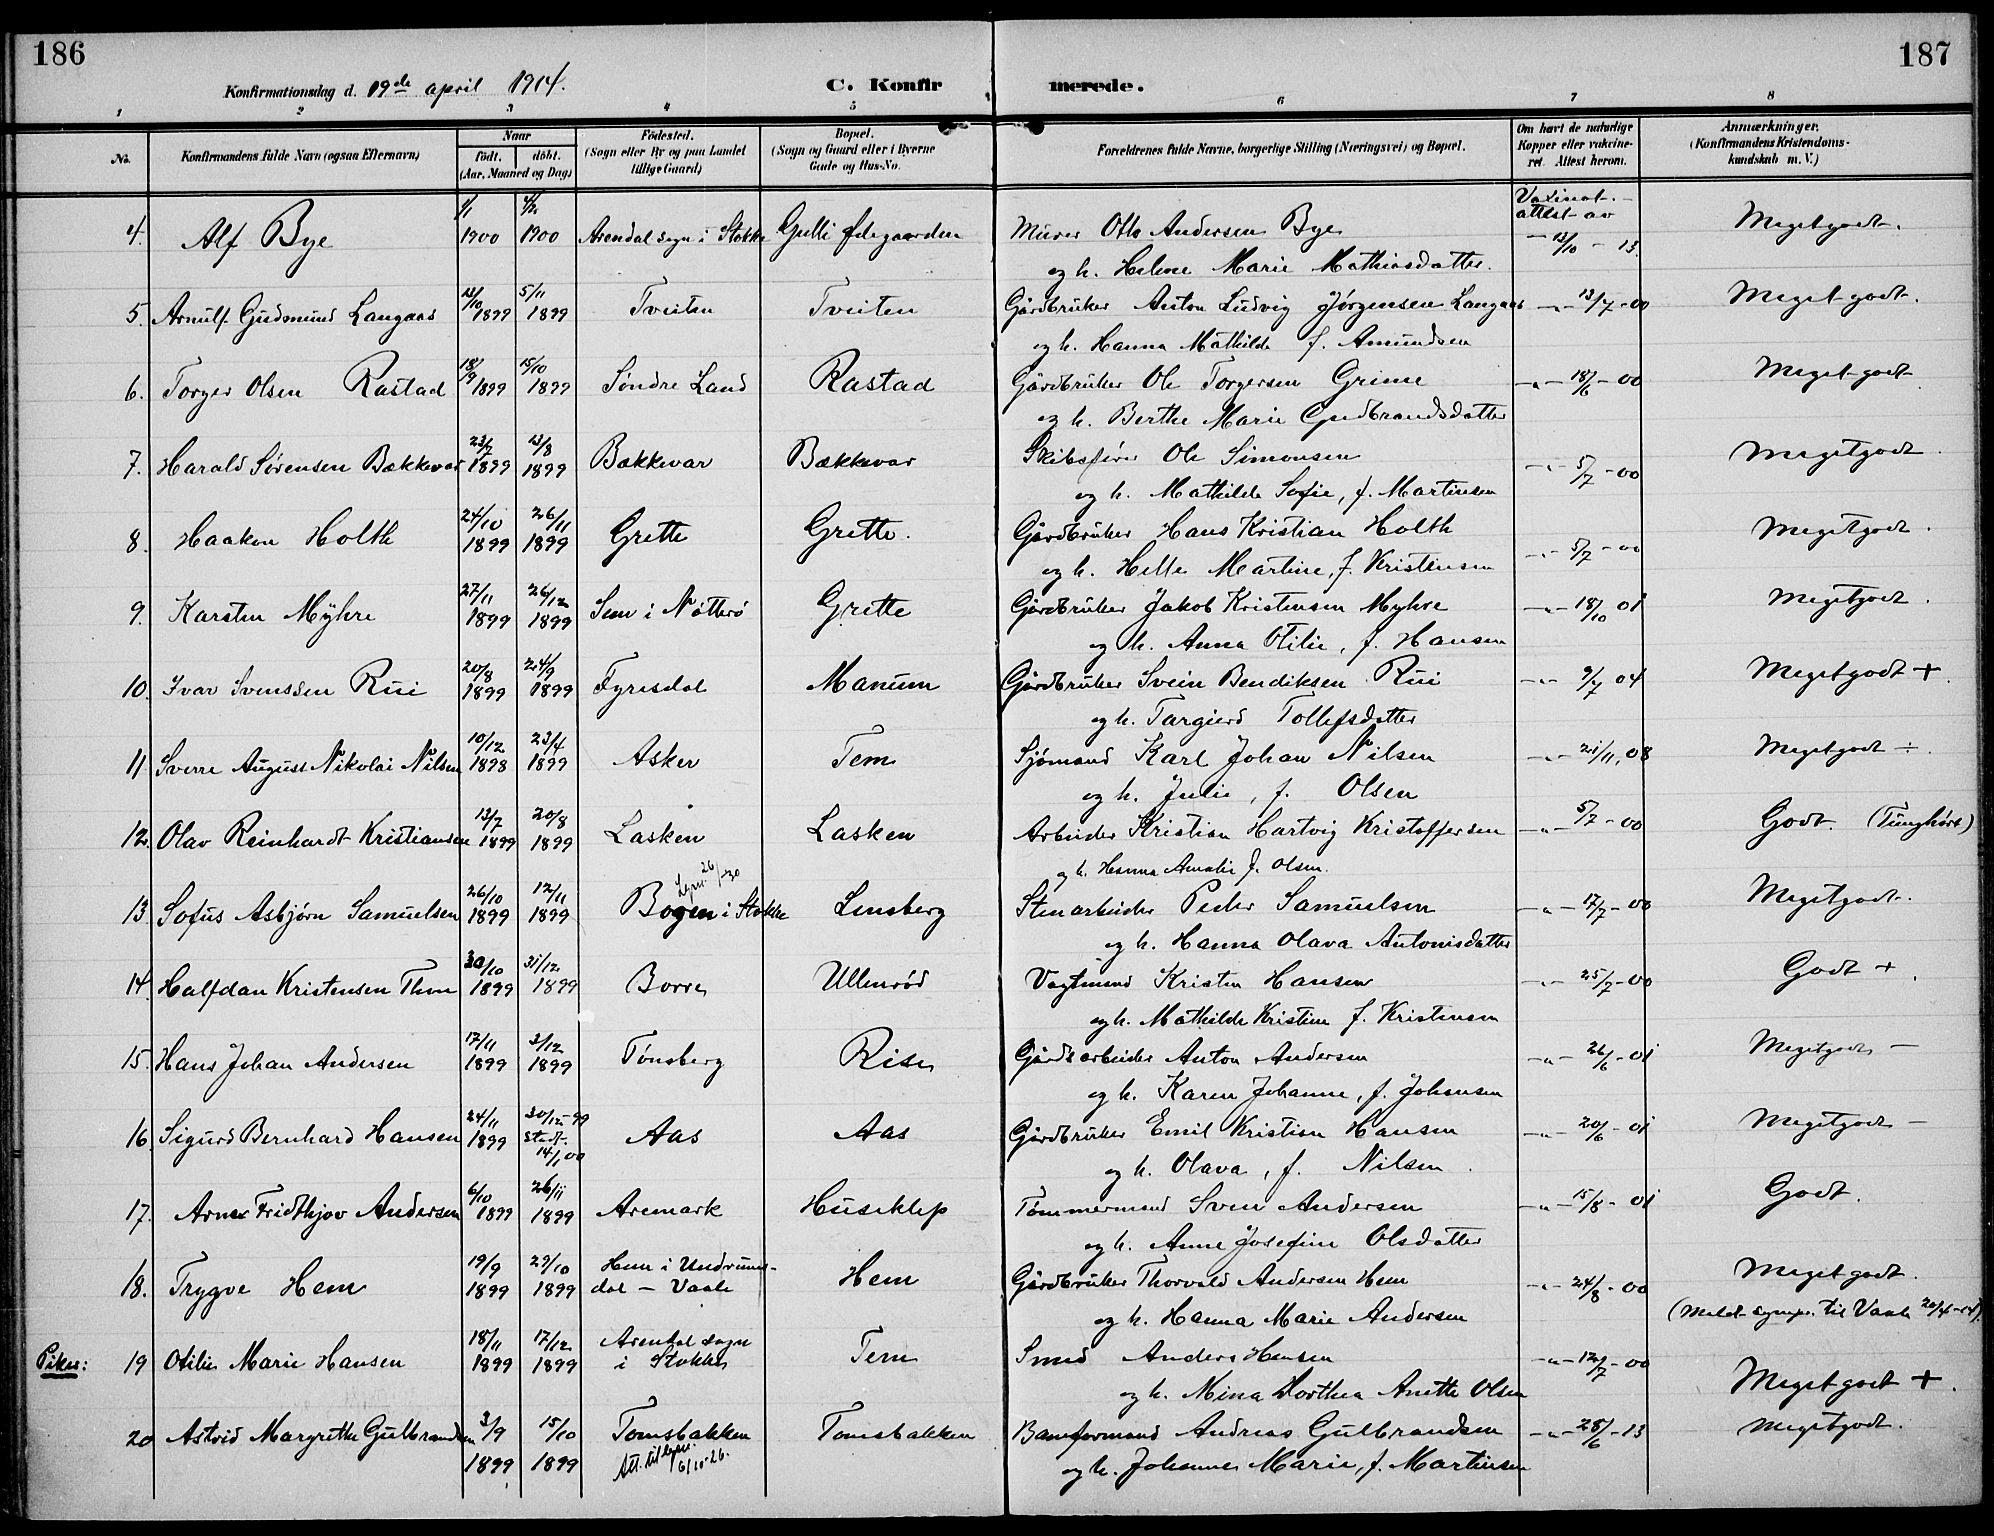 186
187
Konfirmationsdag d. 19de april 1914.
C. Konfirmerede.
1 2 3 4 5 6 7 8
No.
Konfirmandens fulde Navn (ogsaa Efternavn)
Naar
födt. döbt.
(Aar, Maaned og Dag)
Födested.
(Sogn eller By og paa Landet
tillige Gaard)
Bopæl.
(Sogn og Gaard eller i Byerne
Gade og Hus-No.
Forældrenes fulde Navne, borgerlige Stilling (Næringsvei) og Bopæl.
Om havt de naturlige
Kopper eller vakcine-
ret. Attest herom.
Anmærkninger.
(Konfirmandens Kristendoms-
kundskab m. V.)
4. Alf Bye 1/1 1900 4/2 1900 Arendal sogn i Stokke Gulli ødegaarden Murer Otto Andersen Bye Vaxinat.-attest av 13/10 - 13. Megetgodt.
og h. Helene Marie Mathiasdatter.
5. Arnulf Gudmund Langaas 13/10 1899 5/11 1899 Tveiten Tveiten Gårdbruker Anton Ludvig Jørgensen Langaas -"- 13/7-00 Meget godt.
og h. Hanna Mathilde f. Amundsen
6. Torger Olsen Rastad 18/9 1899 15/10 1899 Søndre Land Rastad Gårdbruker Ole Torgersen Grime -"- 18/6-00 Meget godt
og h. Berthe Marie Gudbrandsdatter
7. Harald Sørensen Bækkevar 23/7 1899 13/8 1899 Bækkevar Bækkevar Skibsfører Ole Simonsen -"- 5/7-00 Megetgodt.
og h. Mathilde Sofie, f. Martinsen
8. Haaken Holth 24/10 1899 26/11 1899 Grette Grette. Gårdbruker Hans Kristian Holth -"- 5/7-00 Megetgodt.
og h. Helle Martine, f. Kristensen
9. Karsten Myhre 27/11 1899 26/12 1899 Sem i Nøtterø Grette Gårdbruker Jakob Kristensen Myhre -"- 18/10 01 Megetgodt.
og h. Anna Otilie, f. Hansen
10. Ivar Svenssen Rui 20/8 1899 24/9 1899 Fyrisdal Manum Gårdbruker Svein Bendiksen Rui -"- 9/7 04 Megetgodt +.
og h. Targierd Tollefsdatter
11. Sverre August Nikolai Nilsen 10/12 1898 23/4 1899 Asker Tem Sjømand Karl Johan Nilsen -"- 21/11, 08 Megetgodt ÷.
og h. Julie, f. Olsen
12. Olav Reinhardt Kristiansen 13/7 1899 20/8 1899 Lasken Lasken Arbeider Kristian Hartvig Kristoffersen -"- 5/7-00 Godt. (Tunghørt)
og h. Hanna Amalie f. Olsen.
13. Sofus Asbjørn Samuelsen 26/10 1899 12/11 1899 Bogen i Stokke 26/-30 Linsberg Stenarbeider Peder Samuelsen -"- 17/7-00 Megetgodt.
og h. Hanna Olava Antonisdatter
14. Halfdan Kristensen Thon 30/10 1899 31/12 1899 Borre Ullenrød Vogtmand Kristen Hansen -"- 25/7-00 Godt +.
og h. Mathilde Kristine f. Kristensen
15. Hans Johan Andersen 17/11 1899 3/12 1899 Tønsberg Rise Gårdsarbeider Anton Andersen -"- 26/6-01 Megetgodt -
og h. Karen Johanne, f. Johansen
16. Sigurd Bernhard Hansen 24/11 1899 30/12-99 stadf. 14/1 00 Aas Aas Gårdbruker Emil Kristian Hansen -"- 20/6-01 Megetgodt -
og h. Olava, f. Nilsen.
17. Arne Fridthjov Andersen 6/10 1899 26/11 1899 Aremark Huseklep Tømmermand Sven Andersen -"- 15/8-01 Godt.
og h. Anne Josefine Olsdatter
18. Trygve Hem 19/9 1899 29/10 1899 Hem i Undrumsdal - Vaale Hem Gårdbruker Thorvald Andersen Hem -"- 24/8-00 Meget godt.
og h. Hanna Marie Andersen (Meldt sognepr. til Vaale 20/4-14).
Piker: 19 Otilie Marie Hansen 18/11 1899 17/12 1899 Arendal sogn i Stokke Tem Smed Anders Hansen -"- 12/7-00 Megetgodt +.
og h. Mina Dorthea Anette Olsen
20 Astrid Margrethe Gulbrandsen 3/9 1899 15/10 1899 Tomsbakken Att. til lysn. 6/10-26. Tomsbakken Baneformand Andreas Gulbrandsen -"- 28/6-13 Megetgodt.
og h. Johanne Marie, f. Martinsen